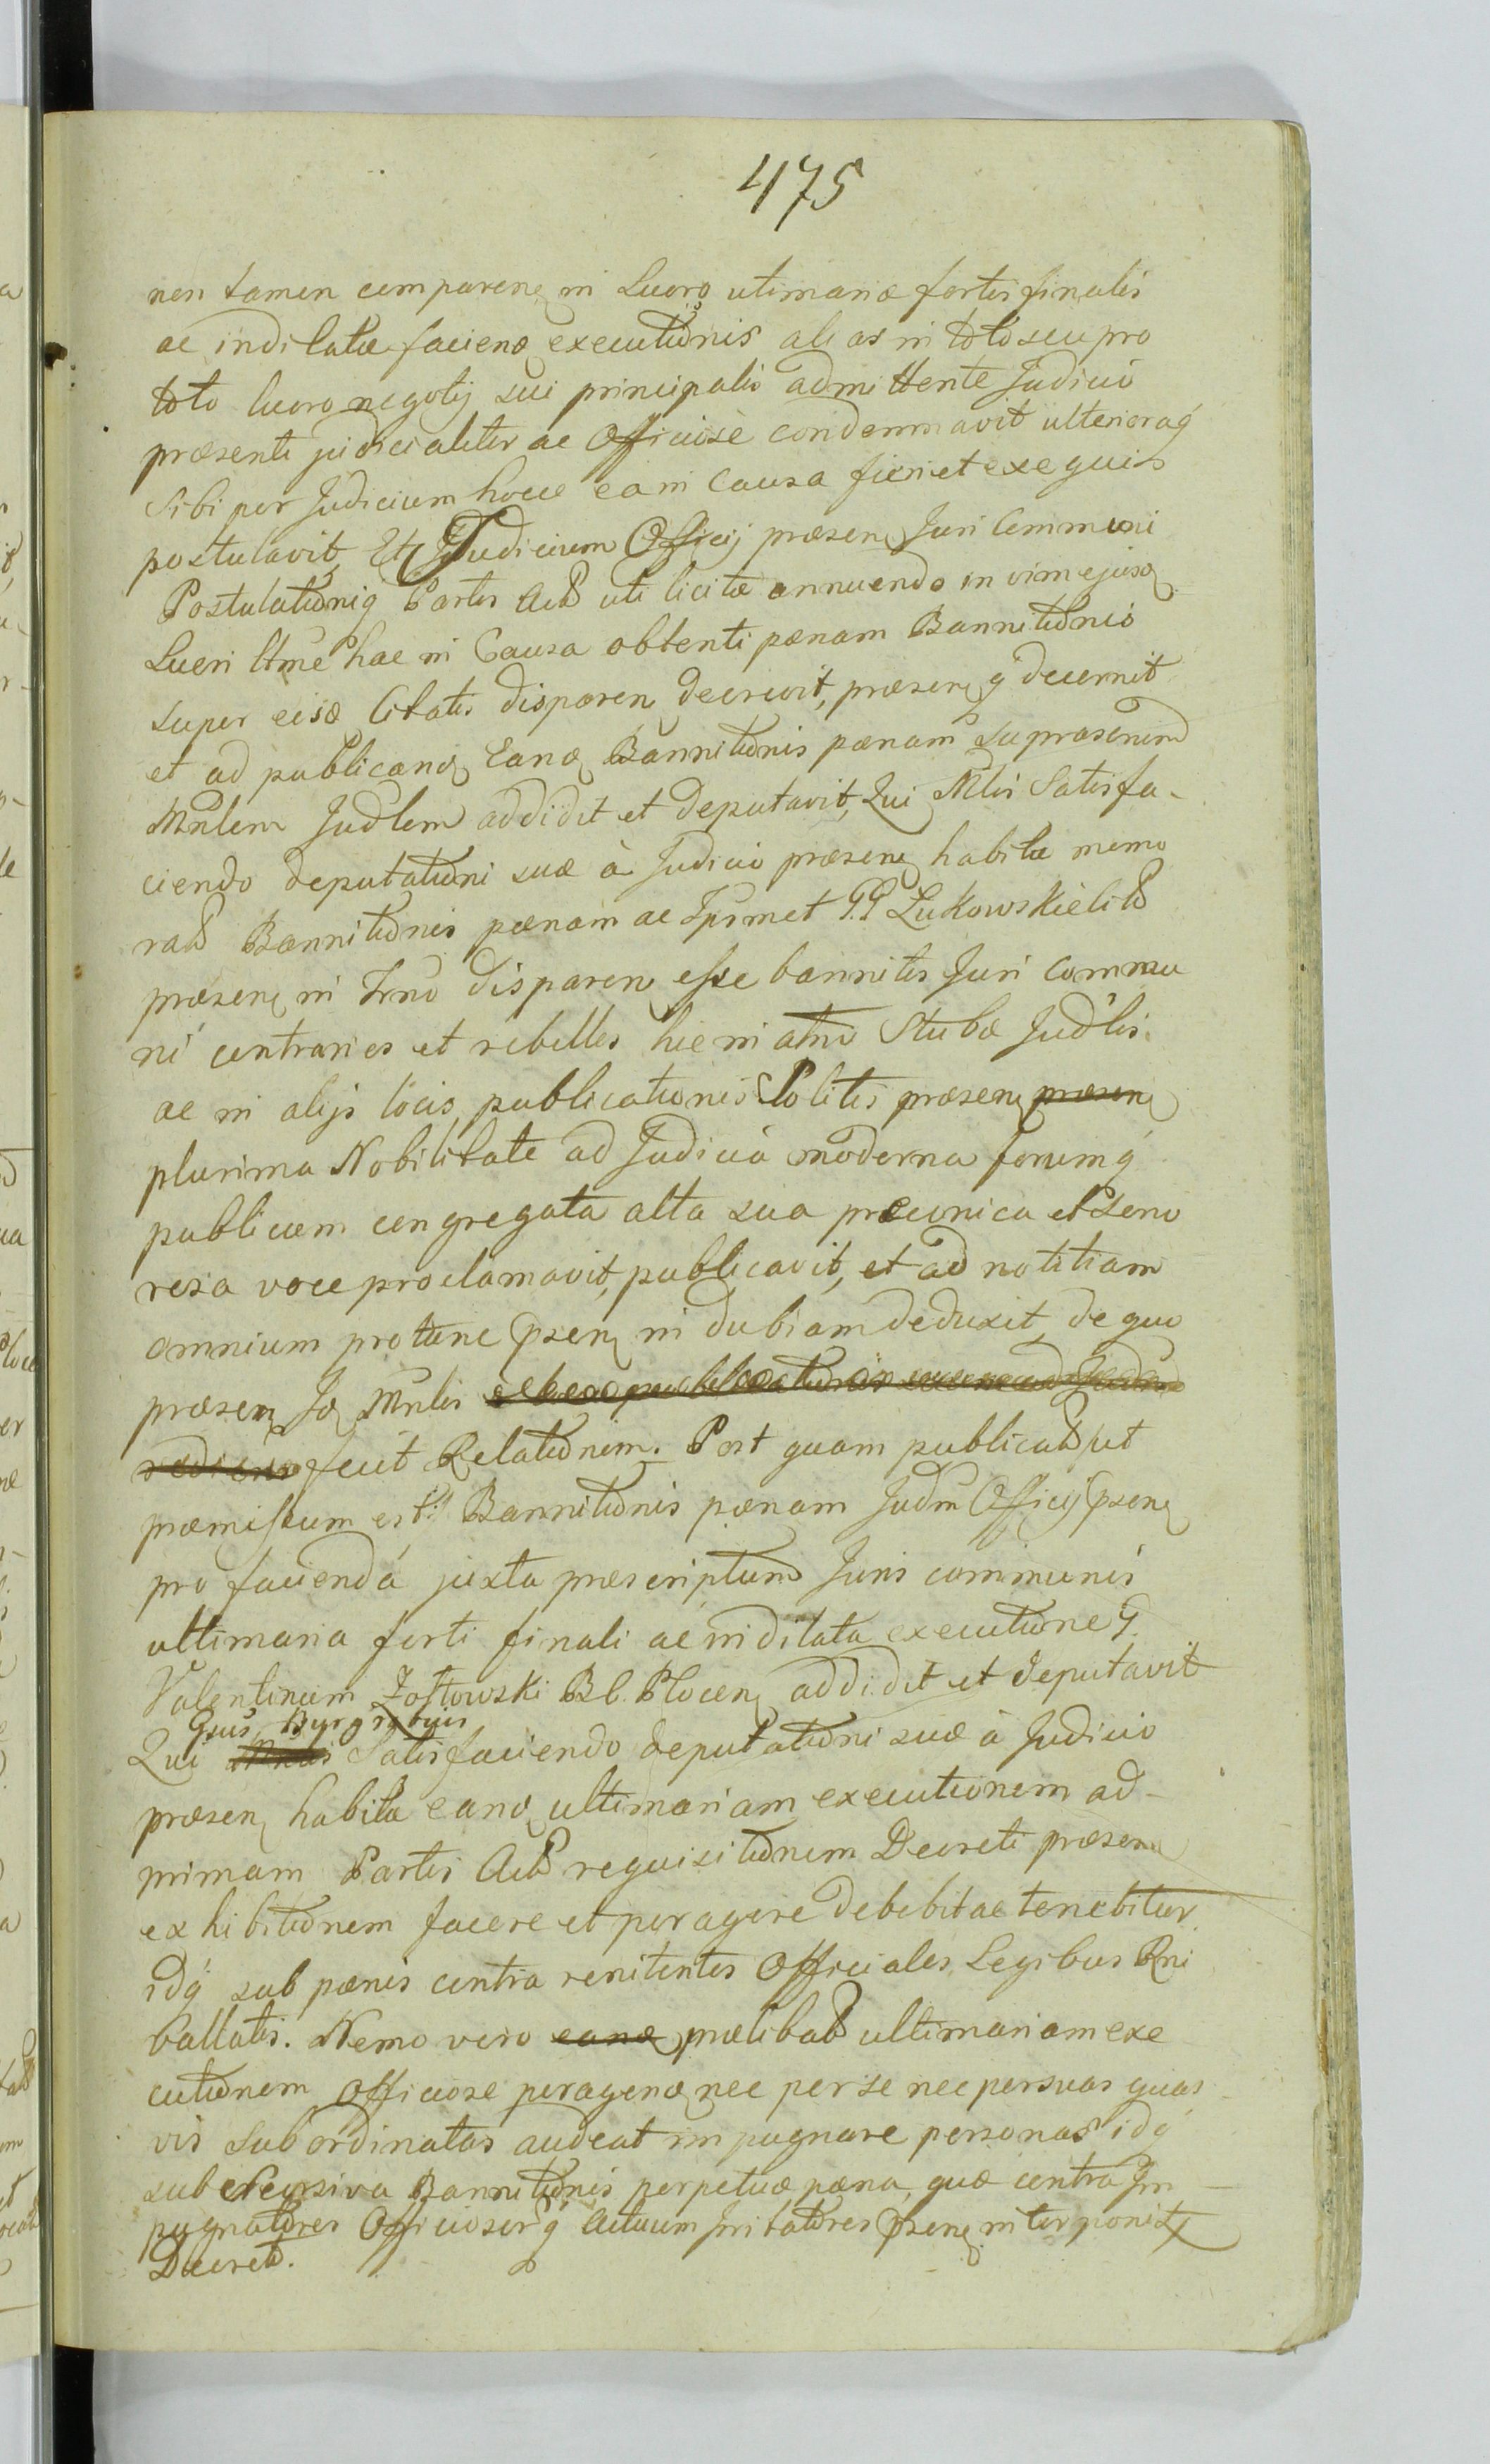 475
non tamen comparen in Lucro ultimariæ fortis finalis
ac indilatæ faciend executionis alias in toto seu pro
toto lucro negotij sui principalis admittente Judicio
præsenti judicialiter ac Officiosè condemnavit ulterioraq
Sibi per Judicium hocce ea in Causa fieri et exequi
postulavit, Et Judicium Officij præsen Juri Communi
Postulationiq Partis Act uti licitæ annuendo in vim ejusd
Lucri ltmè hac in Causa obtenti pænam Bannitionis
super eisd Citatis disparen decrevit, præsen q decernit
et ad publicand Eand Bannitionis pænam supræsenem
Mnlem Judlem addidit et deputavit, Qui Mlis Satisfa-
ciendo deputationi suæ à Judicio præsen habitæ memo
rat Bannitionis pænam ac Ipsmet GG Lukowskie Cit
præsen in Trno disparen esse bannitos Juri Commu
ni contrarios et rebelles hic in atrio Stubæ Judlis
ac in alijs locis publicationis Solitis præsen præsen
plurima Nobilitate ad Judicia moderna forumq
publicum congregata alta sua præconica et sono
rosa voce proclamavit, publicavit, et ad notitiam
omnium protunc psen indubiam deduxit, de quo
præsen Jd Mnlis
fecit Relationem. Post quam publicat ut
præmissum est Bannitionis pænam Judm Officij psen
pro faciendá juxta præscriptum Juris communis
ultimaria forti finali ac indilata executione G.
Valentinum Zostowski B. C. Plocen addidit et deputavit
Gsus Burgrabius
Qui Satisfaciendo deputationi suæ à Judicio
præsen habita eand ultimariam executionem ad-
primam Partis Act requisitionem Decreti præsen
exhibitionem facere et peragere debebit ac tenebitur
idq sub pænis contra renitentes Officiales Legibus Rni
vallatis. Nemo vero eand prælibat ultimariam exe
cutionem Officiose peragend nec per se nec per suas quas
vis subordinatas audeat impugnare personas idq
sub Recursiva Bannitionis perpetuæ pæna, quæ contra Im
pugnatores Officiosorq Actuum Irritatores psen interponit
Decret.